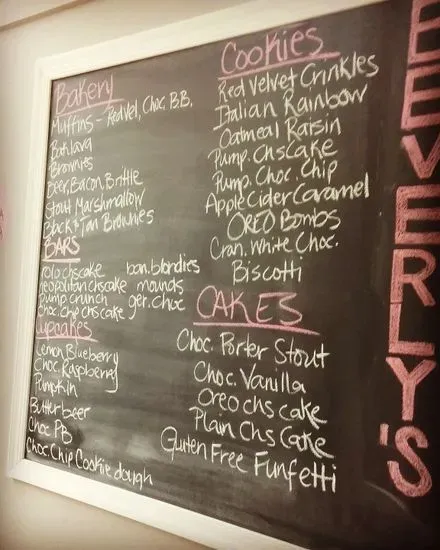 Bakery
Muffins - Redvel, Choc. B.B.
Baklava
Brownies
Beer, Bacon, Brittle
Stout Marshmallow
Black & Tan Brownies
BARS
rolo chscake ban. blondies
neopolitan chscake mounds
pump crunch ger. choc
choc. chip chscake
Cupcakes
Lemon Blueberry
Choc. Raspberry
Pumpkin
Butterbeer
Choc PB
Choc Chip Cookie dough
Cookies
Red Velvet Crinkles
Italian Rainbow
Oatmeal Raisin
Pump. ChsCake
Pump. Choc. Chip
Apple Cider Caramel
OREO Bombs
Cran. White Choc.
Biscotti
CAKES
Choc. Porter Stout
Choc. Vanilla
Oreo chs cake
Plain Chs Cake
Gluten Free Funfetti
BEVERLY'S